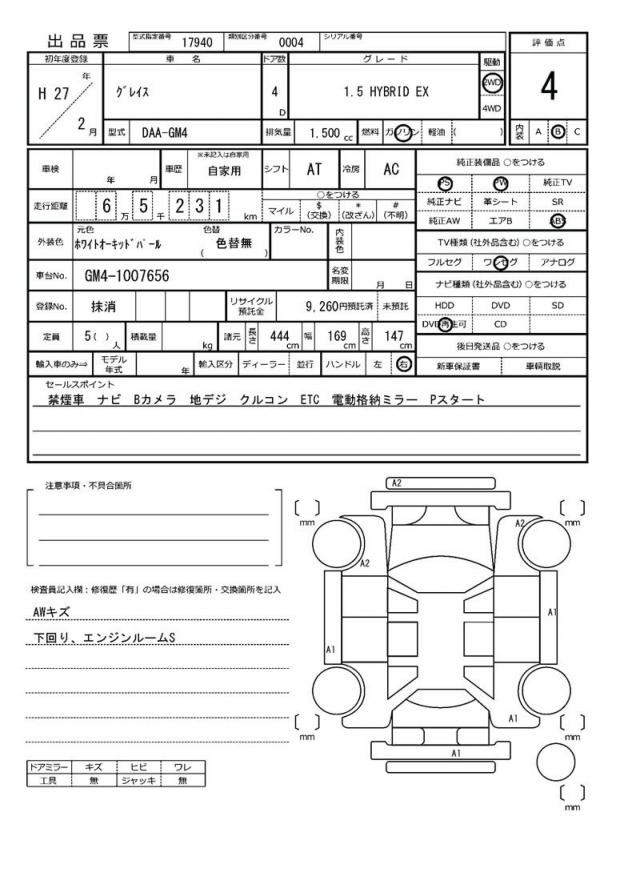 出品票 型式指定番号 17940 類別区分番号 0004 シリアル番号
評価点
4
内装 A B C
初年度登録 車名 ドア数 グレード 駆動
H 27年 2月 グレイス 4D 1.5 HYBRID EX 2WD 4WD
型式 DAA-GM4 排気量 1.500 cc 燃料 ガソリン 軽油 ( )
車検 年 月 車歴 ※未記入は自家用 自家用 シフト AT 冷房 AC
走行距離 6万 5千 2 3 1 km ○をつける マイル $(交換) *(改ざん) #(不明)
外装色 元色 ホワイトオーキッドパール 色替 (色替無) カラーNo. 内装色
車台No. GM4-1007656 名変期限 月 日
登録No. 抹消 リサイクル預託金 9,260円預託済 未預託
定員 5( )人 積載量 kg 諸元 長さ 444cm 幅 169cm 高さ 147cm
輸入車のみ⇒ モデル年式 年 輸入区分 ディーラー 並行 ハンドル 左 右
純正装備品 ○をつける
PS PW 純正TV
純正ナビ 革シート SR
純正AW エアB ABS
TV種類 (社外品含む) ○をつける
フルセグ ワンセグ アナログ
ナビ種類 (社外品含む) ○をつける
HDD DVD SD
DVD再生可 CD
後日発送品 ○をつける
新車保証書 車輌取説
セールスポイント
禁煙車 ナビ Bカメラ 地デジ クルコン ETC 電動格納ミラー Pスタート
注意事項・不具合箇所
検査員記入欄:修復歴「有」の場合は修復箇所・交換箇所を記入
AWキズ
下回り、エンジンルームS
ドアミラー キズ ヒビ ワレ
工具 無 ジャッキ 無
A2
mm mm
A2
A2
A1
A1
A1
mm mm
A1
mm